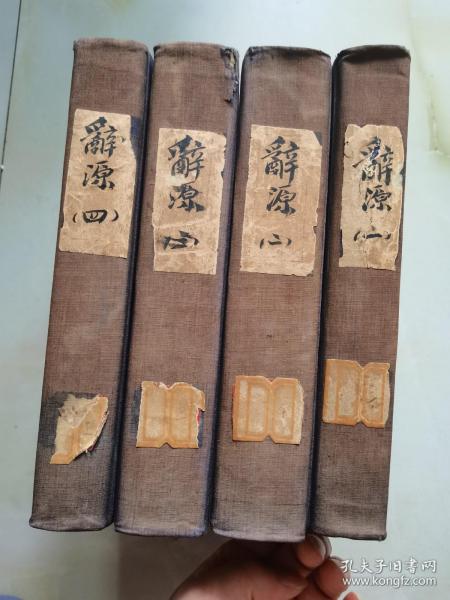 辭源
(四)
辭源
(三)
辭源
(二)
辭源
(一)
孔夫子旧书网
www.kongfz.com